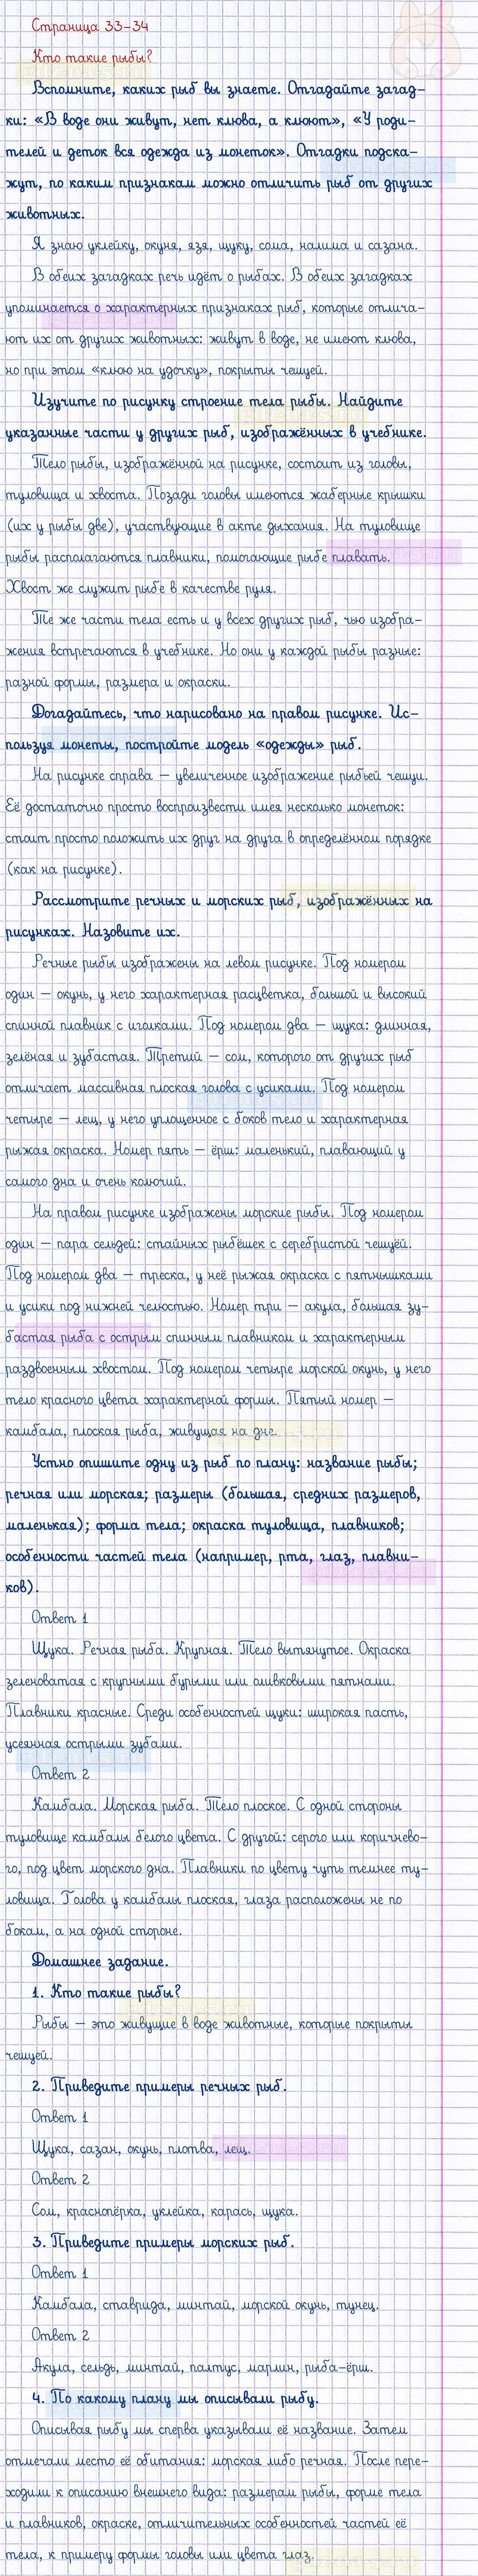 Страница 33-34
Кто такие рыбы?
Вспомните, каких рыб вы знаете. Отгадайте загад-
ки: «В воде они живут, нет клюва, а клюют», «У роди-
телей и деток вся одежда из монеток». Отгадки подска-
жут, по каким признакам можно отличить рыб от других
животных.
Я знаю уклейку, окуня, язя, щуку, сома, налима и сазана.
В обеих загадках речь идёт о рыбах. В обеих загадках
упоминается о характерных признаках рыб, которые отлича-
ют их от других животных: живут в воде, не имеют клюва,
но при этом «клюю на удочку», покрыты чешуей.
Изучите по рисунку строение тела рыбы. Найдите
указанные части у других рыб, изображённых в учебнике.
Тело рыбы, изображённой на рисунке, состоит из головы,
туловища и хвоста. Позади головы имеются жаберные крышки
(их у рыбы две), участвующие в акте дыхания. На туловище
рыбы располагаются плавники, помогающие рыбе плавать.
Хвост же служит рыбе в качестве руля.
Те же части тела есть и у всех других рыб, чью изобра-
жения встречаются в учебнике. Но они у каждой рыбы разные:
разной формы, размера и окраски.
Догадайтесь, что нарисовано на правом рисунке. Ис-
пользуя монеты, постройте модель «одежды» рыб.
На рисунке справа – увеличенное изображение рыбьей чешуи.
Её достаточно просто воспроизвести имея несколько монеток:
стоит просто положить их друг на друга в определённом порядке
(как на рисунке).
Рассмотрите речных и морских рыб, изображённых на
рисунках. Назовите их.
Речные рыбы изображены на левом рисунке. Под номером
один – окунь, у него характерная расцветка, большой и высокий
спинной плавник с иголками. Под номером два – щука: длинная,
зелёная и зубастая. Третий – сом, которого от других рыб
отличает массивная плоская голова с усиками. Под номером
четыре – лещ, у него уплощенное с боков тело и характерная
рыжая окраска. Номер пять – ёрш: маленький, плавающий у
самого дна и очень колючий.
На правом рисунке изображены морские рыбы. Под номером
один – пара сельдей: стайных рыбёшек с серебристой чешуёй.
Под номером два – треска, у неё рыжая окраска с пятнышками
и усики под нижней челюстью. Номер три – акула, большая зу-
бастая рыба с острым спинным плавником и характерным
раздвоенным хвостом. Под номером четыре морской окунь, у него
тело красного цвета характерной формы. Пятый номер –
камбала, плоская рыба, живущая на дне.
Устно опишите одну из рыб по плану: название рыбы;
речная или морская; размеры (большая, средних размеров,
маленькая); форма тела; окраска туловища, плавников;
особенности частей тела (например, рта, глаз, плавни-
ков).
Ответ 1
Щука. Речная рыба. Крупная. Тело вытянутое. Окраска
зеленоватая с крупными бурыми или оливковыми пятнами.
Плавники красные. Среди особенностей щуки: широкая пасть,
усеянная острыми зубами.
Ответ 2
Камбала. Морская рыба. Тело плоское. С одной стороны
туловище камбалы белого цвета. С другой: серого или коричнево-
го, под цвет морского дна. Плавники по цвету чуть темнее ту-
ловища. Голова у камбалы плоская, глаза расположены не по
бокам, а на одной стороне.
Домашнее задание.
1. Кто такие рыбы?
Рыбы – это живущие в воде животные, которые покрыты
чешуей.
2. Приведите примеры речных рыб.
Ответ 1
Щука, сазан, окунь, плотва, лещ.
Ответ 2
Сом, краснопёрка, уклейка, карась, щука.
3. Приведите примеры морских рыб.
Ответ 1
Камбала, ставрида, минтай, морской окунь, тунец.
Ответ 2
Акула, сельдь, минтай, палтус, марлин, рыба-ёрш.
4. По какому плану мы описывали рыбу.
Описывая рыбу мы сперва указывали её название. Затем
отмечали место её обитания: морская либо речная. После пере-
ходили к описанию внешнего вида: размерам рыбы, форме тела
и плавников, окраске, отличительных особенностей частей её
тела, к примеру формы головы или цвета глаз.